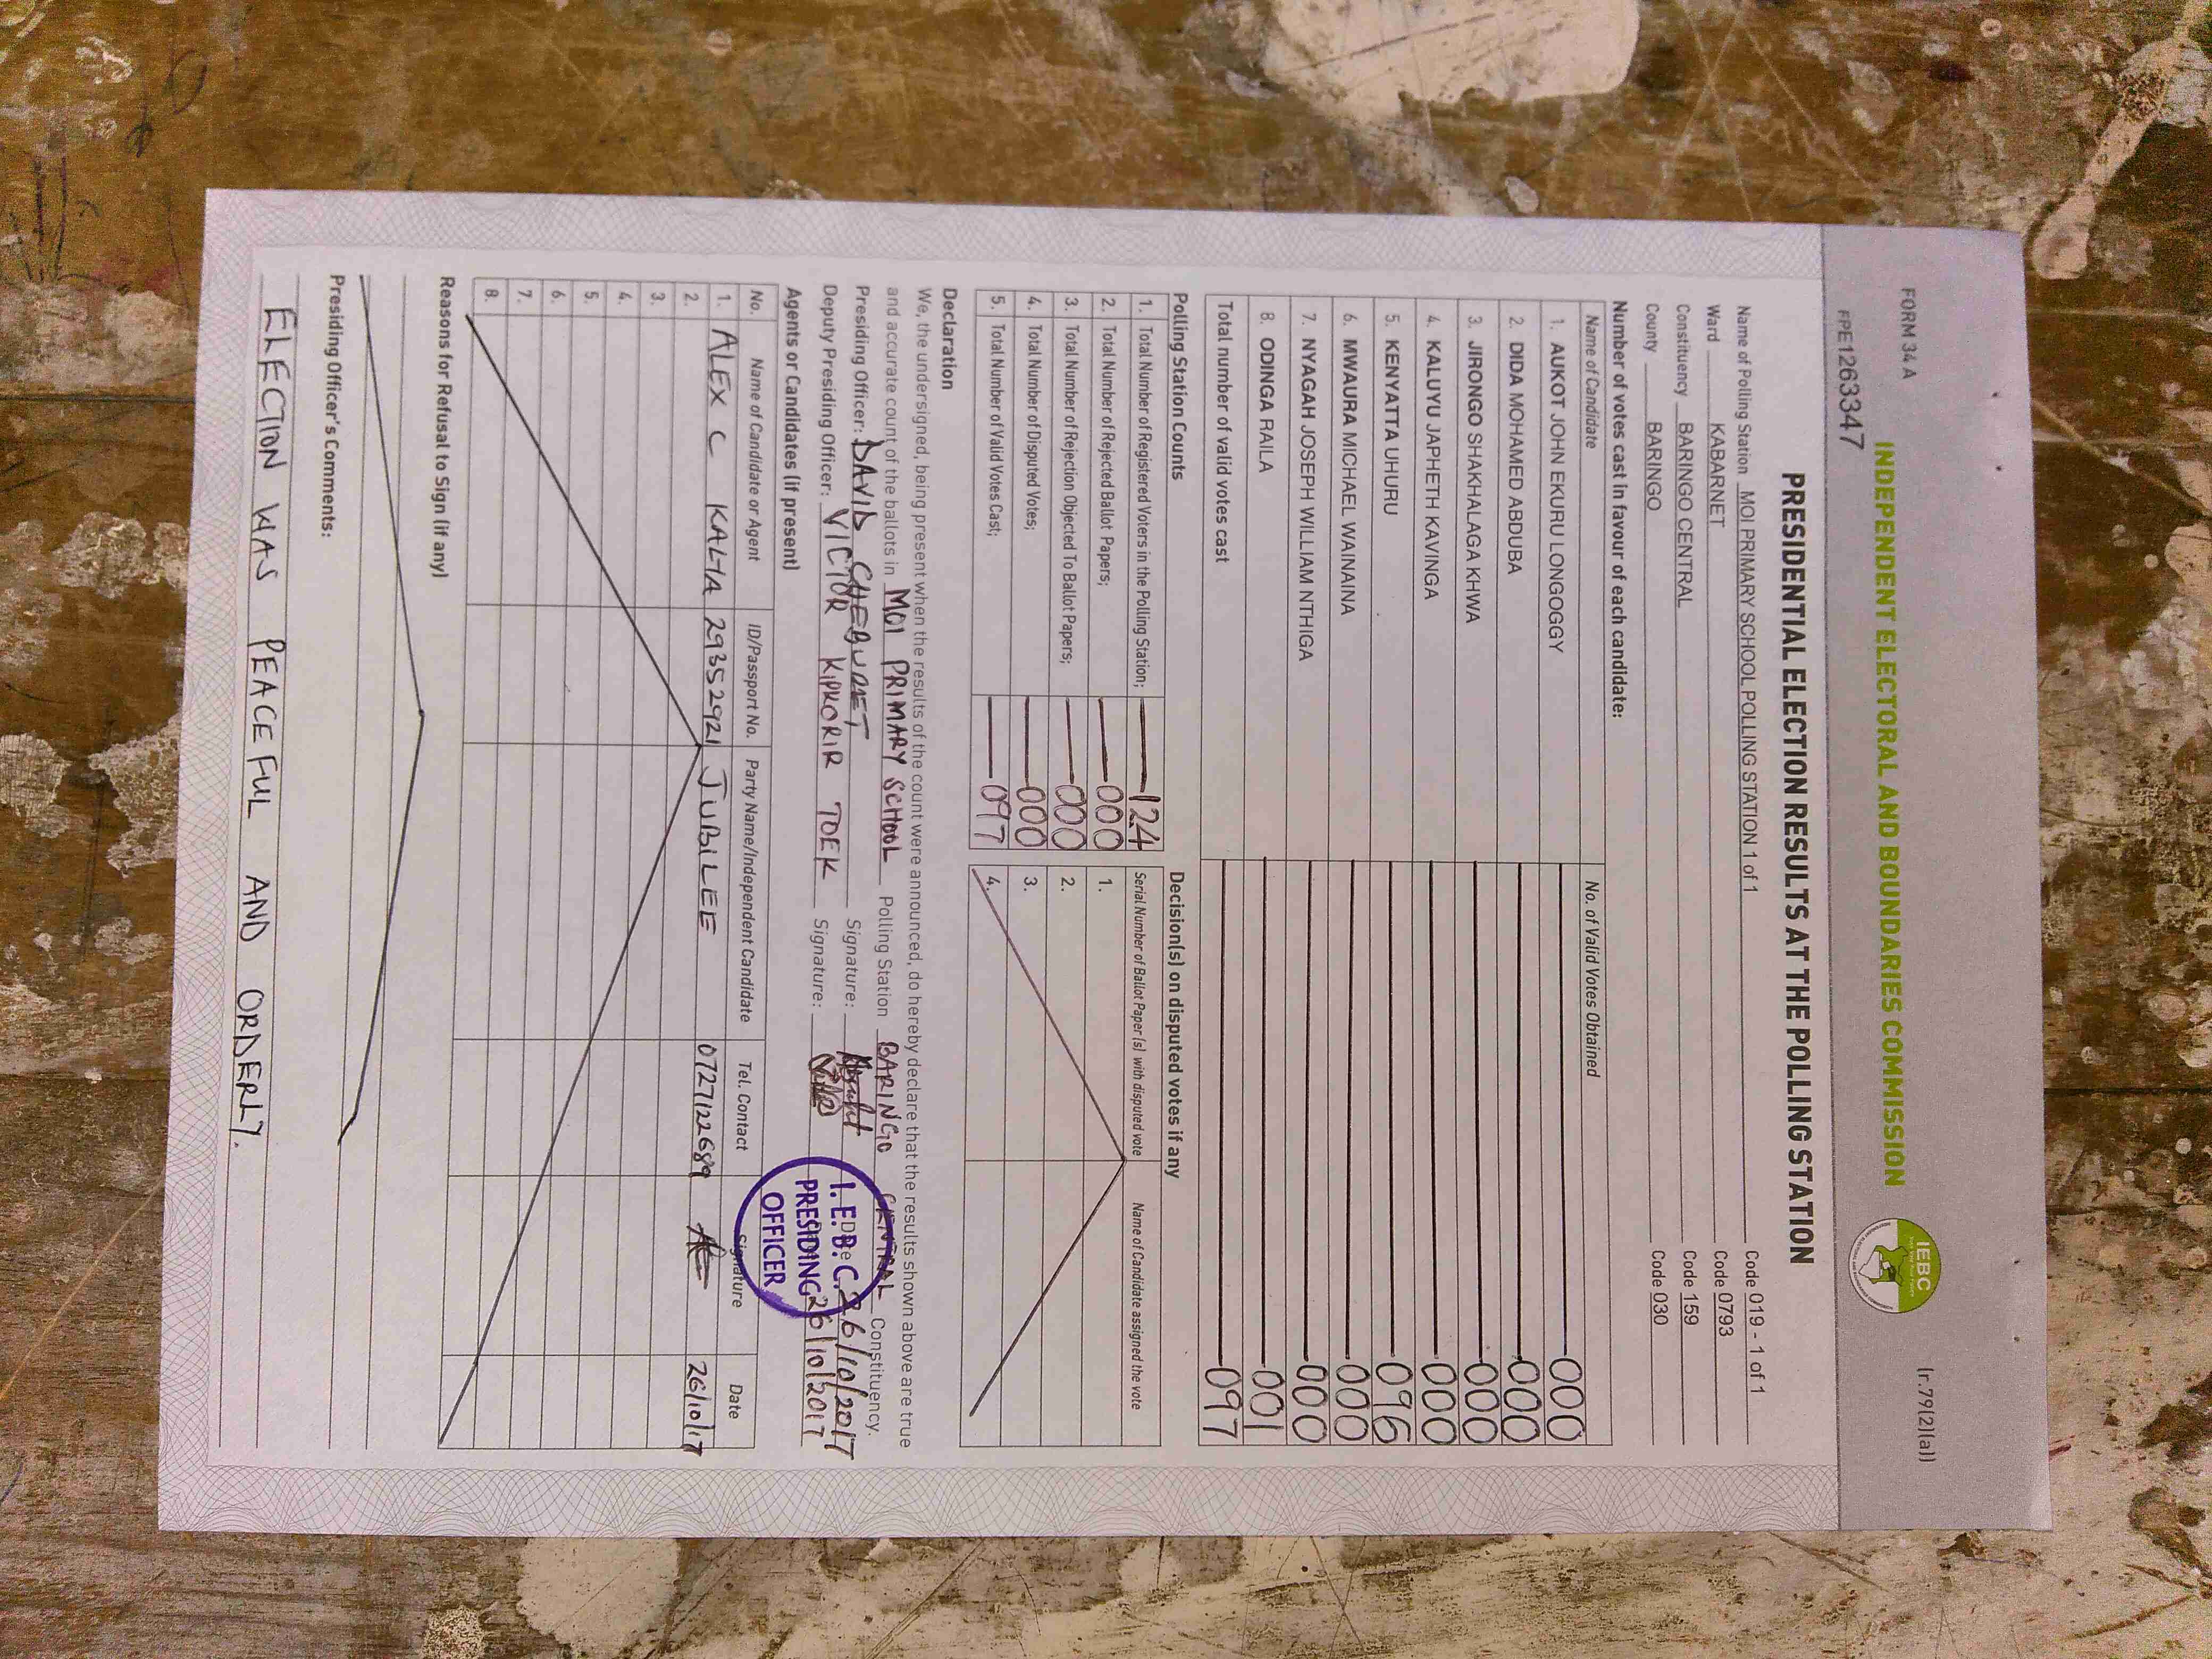 FORM 34 A
(r.79(2)(a))
FPE1263347
INDEPENDENT ELECTORAL AND BOUNDARIES COMMISSION
IEBC
PRESIDENTIAL ELECTION RESULTS AT THE POLLING STATION
Name of Polling Station MOI PRIMARY SCHOOL POLLING STATION 1 of 1 Code 019 - 1 of 1
Ward KABARNET Code 0793
Constituency BARINGO CENTRAL Code 159
County BARINGO Code 030
Number of votes cast in favour of each candidate:
Name of Candidate No. of Valid Votes Obtained
1. AUKOT JOHN EKURU LONGOGGY 000
2. DIDA MOHAMED ABDUBA 000
3. JIRONGO SHAKHALAGA KHWA 000
4. KALUYU JAPHETH KAVINGA 000
5. KENYATTA UHURU 096
6. MWAURA MICHAEL WAINAINA 000
7. NYAGAH JOSEPH WILLIAM NTHIGA 000
8. ODINGA RAILA 001
Total number of valid votes cast 097
Polling Station Counts
1. Total Number of Registered Voters in the Polling Station; 124
2. Total Number of Rejected Ballot Papers; 000
3. Total Number of Rejection Objected To Ballot Papers; 000
4. Total Number of Disputed Votes; 000
5. Total Number of Valid Votes Cast; 097
Decision(s) on disputed votes if any
Serial Number of Ballot Paper (s) with disputed vote Name of Candidate assigned the vote
1.
2.
3.
4.
Declaration
We, the undersigned, being present when the results of the count were announced, do hereby declare that the results shown above are true
and accurate count of the ballots in MOI PRIMARY SCHOOL Polling Station BARINGO CENTRAL Constituency.
Presiding Officer: DAVID CHEBURET Signature: Date 26/10/2017
Deputy Presiding Officer: VICTOR KIPKORIR TOEK Signature: 26/10/2017
I.E.B.C.
PRESIDING
OFFICER
Agents or Candidates (if present)
No. Name of Candidate or Agent ID/Passport No. Party Name/Independent Candidate Tel. Contact Signature Date
1. ALEX C KALYA 29352921 JUBILEE 0727122689 26/10/17
2.
3.
4.
5.
6.
7.
8.
Reasons for Refusal to Sign (if any)
Presiding Officer's Comments:
ELECTION WAS PEACEFUL AND ORDERLY.